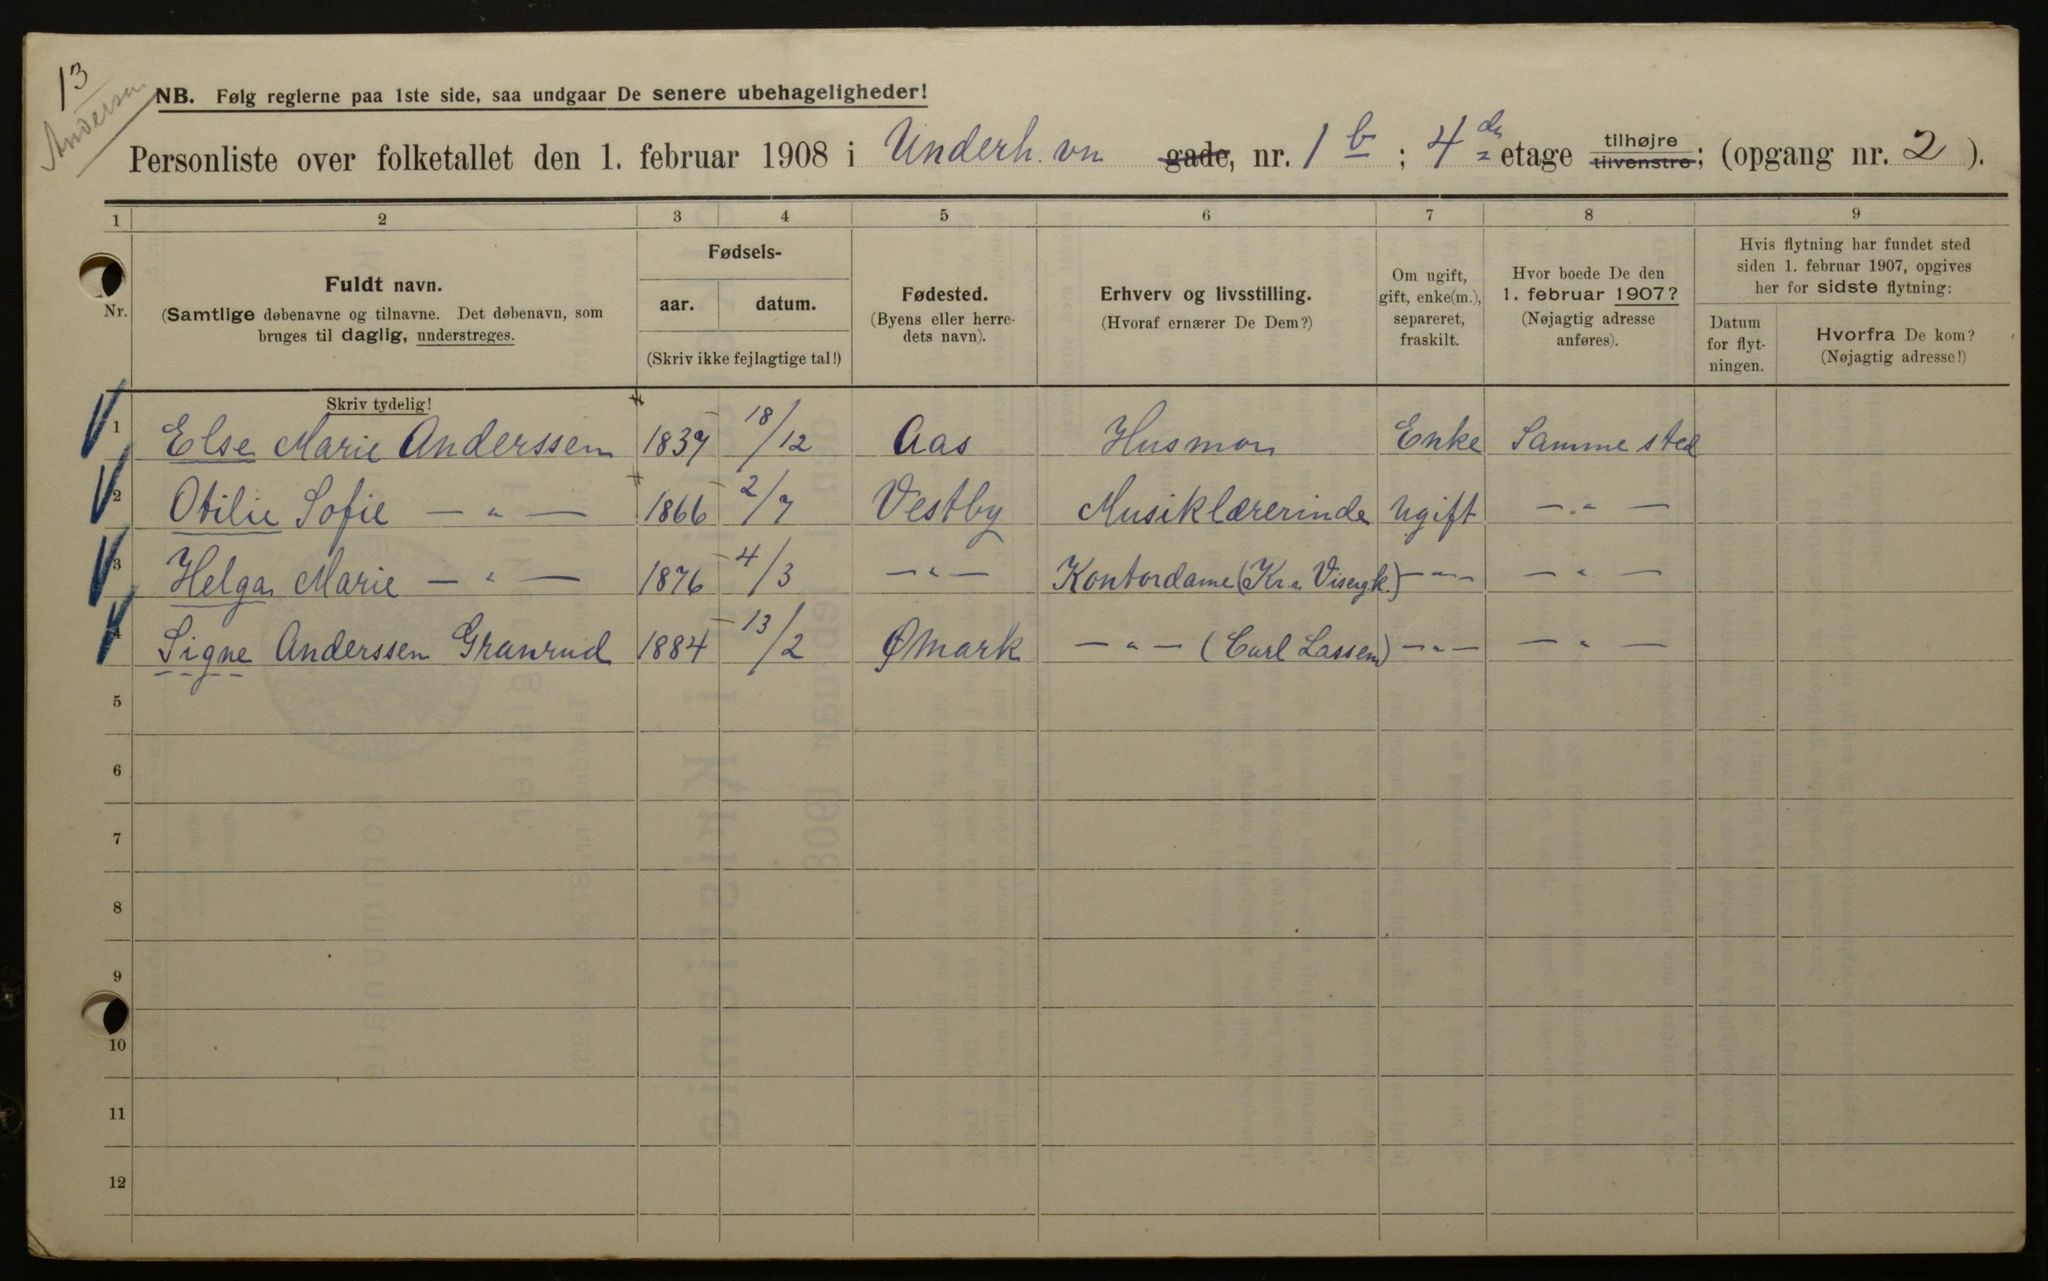 13
Andersen
NB. Følg reglerne paa 1ste side, saa undgaar De senere ubehageligheder!
Personliste over folketallet den 1. februar 1908 i Underh. vn gade, nr. 1 b ; 4 de etage tilhøjre tilvenstre; (opgang nr. 2 ).
1 2 3 4 5 6 7 8 9
Nr.
Fuldt navn.
(Samtlige døbenavne og tilnavne. Det døbenavn, som
bruges til daglig, understreges.
Skriv tydelig!
Fødsels-
aar. datum.
(Skriv ikke fejlagtige tal!)
Fødested.
(Byens eller herre-
dets navn).
Erhverv og livsstilling.
(Hvoraf ernærer De Dem?)
Om ugift,
gift, enke(m.),
separeret,
fraskilt.
Hvor boede De den
1. februar 1907?
(Nøjagtig adresse
anføres).
Hvis flytning har fundet sted
siden 1. februar 1907, opgives
her for sidste flytning:
Datum
for flyt-
ningen.
Hvorfra De kom?
(Nøjagtig adresse!)
1 Else Marie Anderssen 1839 18/12 Aas Husmor Enke Samme sted
2 Otilie Sofie — „ — 1866 2/7 Vestby Musiklærerinde ugift — „ —
3 Helga Marie — „ — 1876 4/3 — „ — Kontordame (Kr.a Visergk.) — „ — — „ —
4 Signe Anderssen Granrud 1884 13/2 Ømark — „ — (Carl Lassen) — „ — — „ —
5
6
7
8
9
10
11
12